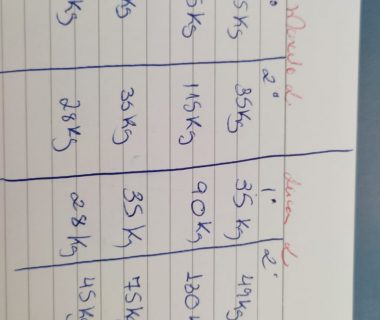 2° 1° 2°
5Kg 35Kg 35Kg 49Kg
5Kg 115Kg 90Kg 120K
Kg 30Kg 35Kg 75K
Kg 28Kg 28Kg 45K